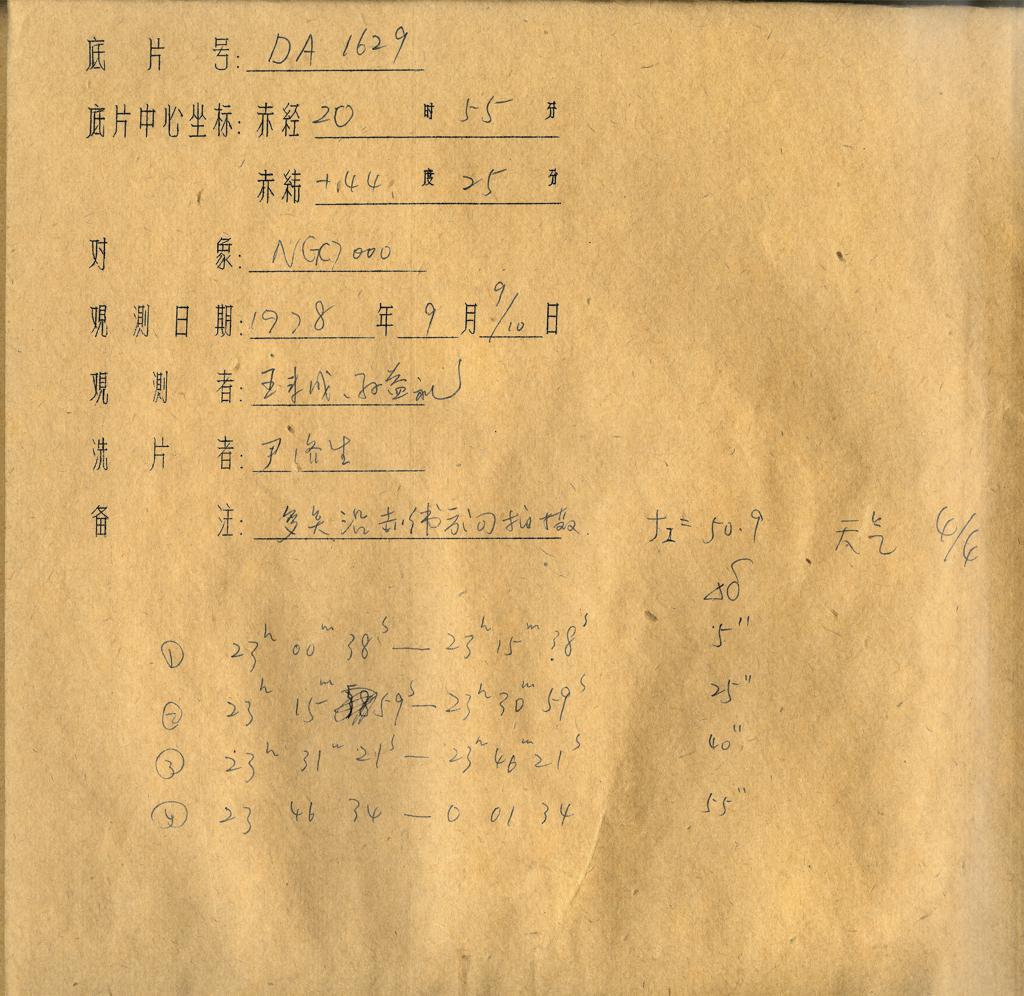 底片号: DA 1629
底片中心坐标: 赤经 20 时 55 分
赤纬 +44 度 25 分
对象: NGC7000
观测日期: 1978 年 9 月 9/10 日
观测者: 王来成、孙益礼
洗片者: 尹洛生
备注: 多关沿赤纬方向拍摄 f_I = 50.9 天气 4/4
Δδ
① 23h 00m 38s — 23h 15m 38s 5"
② 23h 15m 59s — 23h 30m 59s 25"
③ 23h 31m 21s — 23h 46m 21s 40"
④ 23 46 34 — 0 01 34 55"